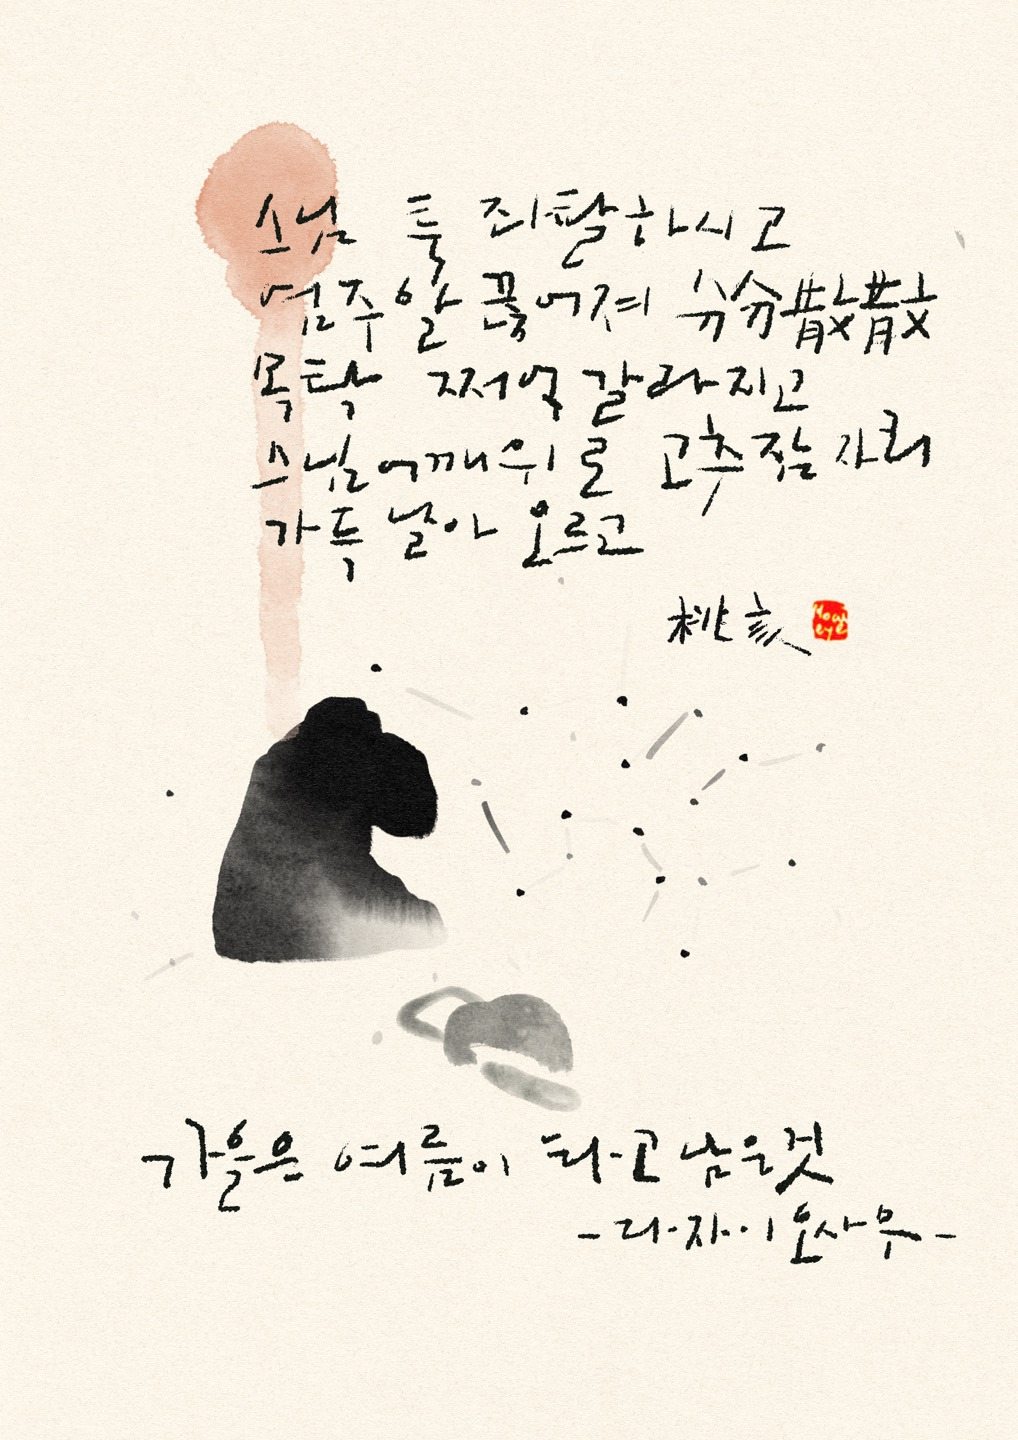 스님 툭 좌탈하시고
염주알 끊어져 分分散散
목탁 쩌억 갈라지고
스님 어깨 위로 고추잠자리
가득 날아 오르고
桃亥
Moai eye
가을은 여름이 타고 남은 것
-다·자·이 오사무-